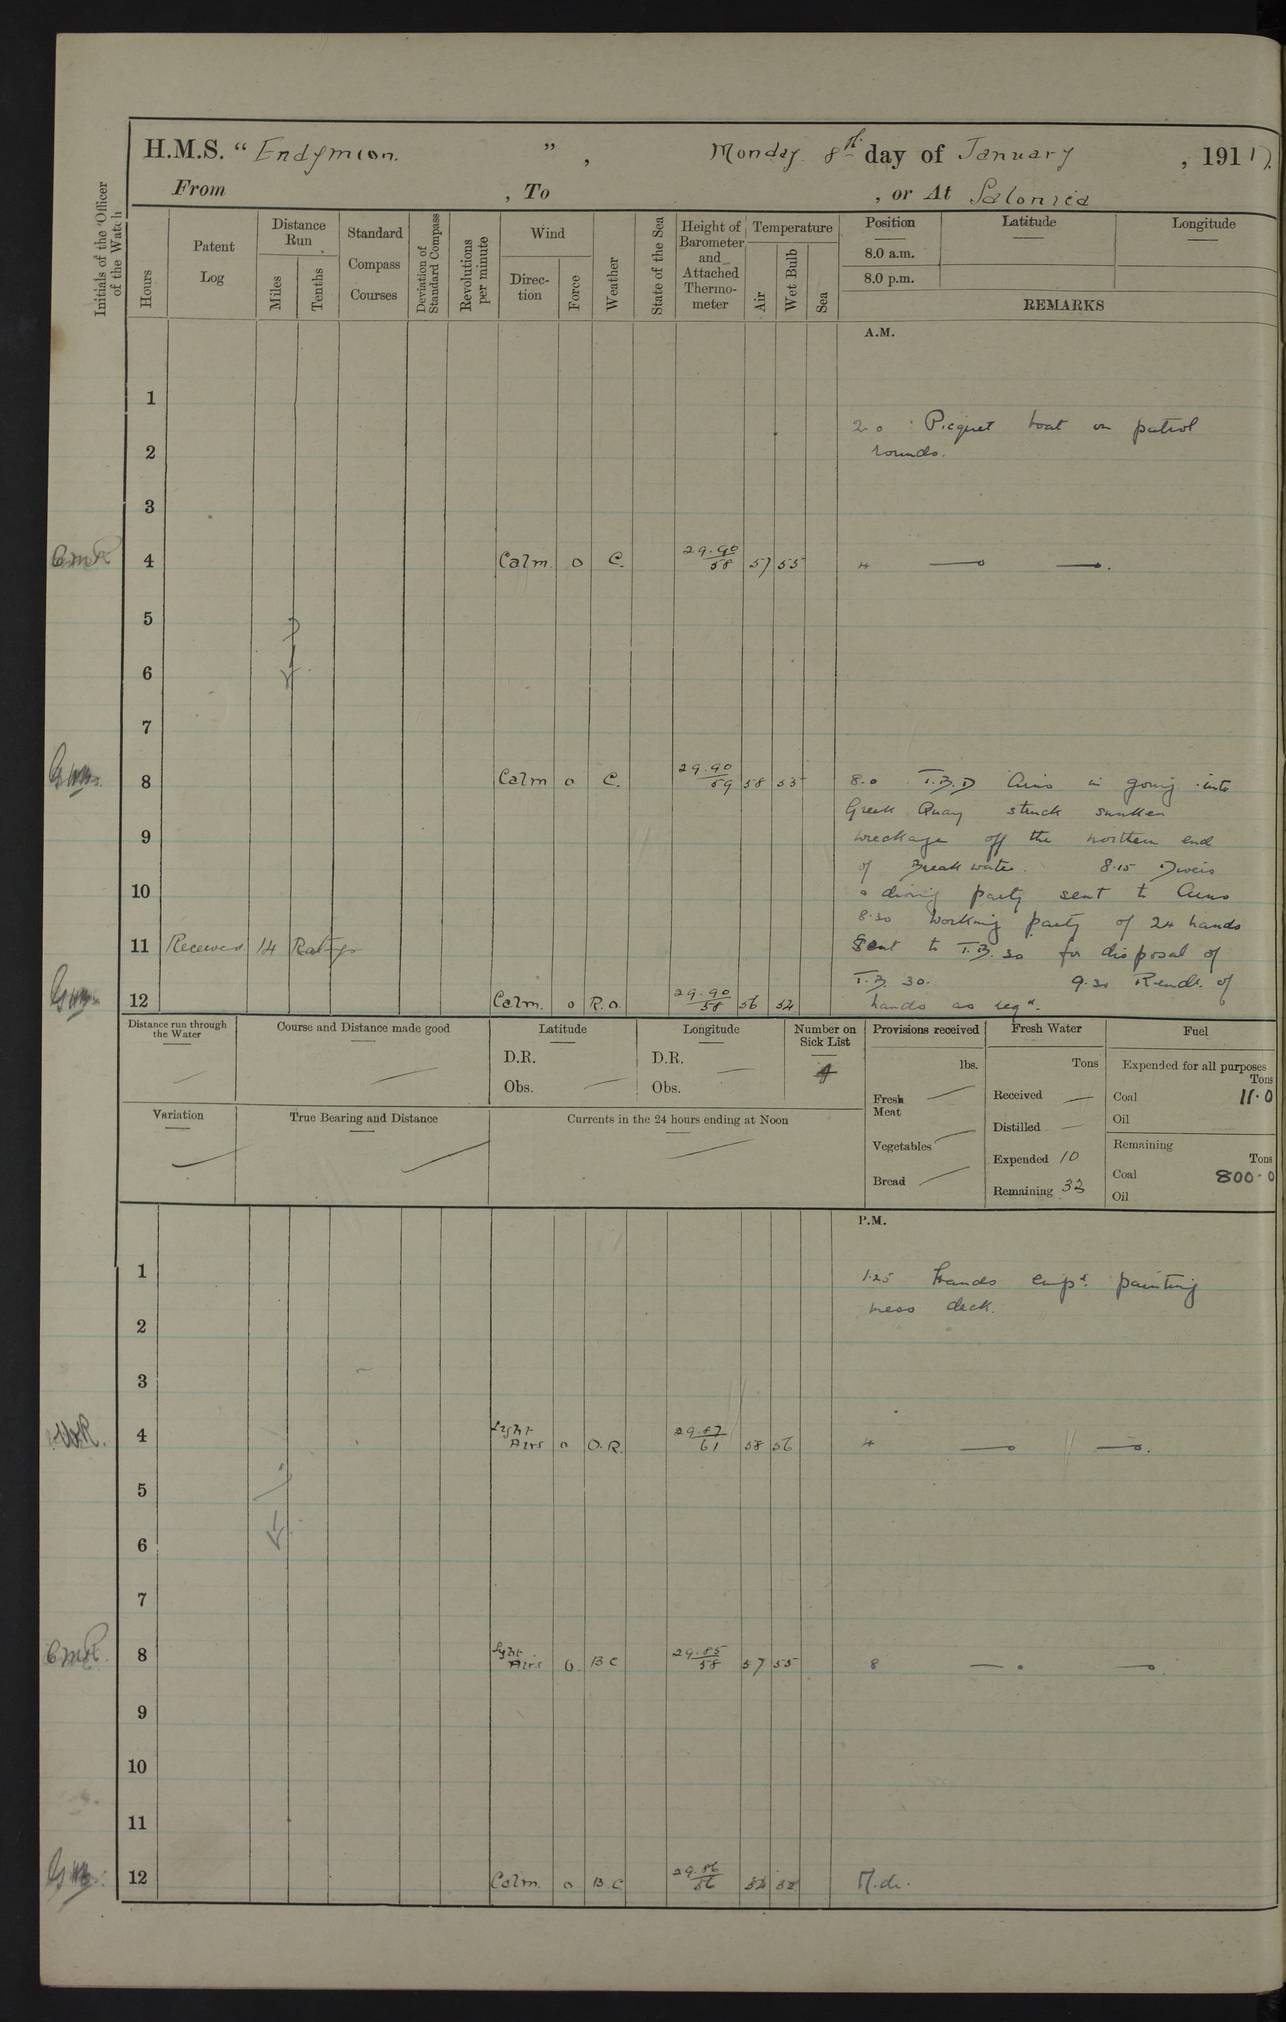 H.M.S. “ Endymion. ” , Monday 8th day of January , 1917.
From , To , or At Salonica
Initials of the Officer of the Watch
Hours
Patent Log
Distance Run
Miles
Tenths
Standard Compass Courses
Deviation of Standard Compass
Revolutions per minute
Wind
Direc- tion
Force
Weather
State of the Sea
Height of Barometer and Attached Thermo- meter
Temperature
Air
Wet Bulb
Sea
Position Latitude Longitude
8.0 a.m.
8.0 p.m.
REMARKS
A.M.
1
2.0 : Picquet boat on patrol
2 rounds.
3
4 Calm. 0 C. 29.90/58 57 55 4 — —.
5
6
7
8 Calm 0 C. 29.90/59 58 53 8.0 T.B.D in going into
Greek Quay struck sunken
9 wreckage off the northern end
of Breakwater. 8.15 Divers
10 & diving party sent to
8.30 Working party of 24 hands
11 Received 14 Ratings Sent to T.B. 30 for disposal of
T.B. 30. 9.30 Rendr. of
12 Calm. 0 R.O. 29.90/58 56 52 hands as reqd.
Distance run through the Water
Course and Distance made good
Latitude
D.R.
Obs.
Longitude
D.R.
Obs.
Number on Sick List
Provisions received
lbs.
Fresh Meat
Vegetables
Bread
Fresh Water
Tons
Received
Distilled
Expended 10
Remaining 33
Fuel
Expended for all purposes
Tons
Coal 11.0
Oil
Remaining
Tons
Coal 800.0
Oil
Variation
True Bearing and Distance
Currents in the 24 hours ending at Noon
P.M.
1 1.25 Hands empd. painting
mess deck.
2
3
4 Light Airs 0 O.R. 29.87/61 58 56 4 — —.
5
6
7
8 Light Airs 0. BC 29.85/58 57 55 8 — . —
9
10
11
12 Calm. 0 B.C 29.86/56 M.dr.